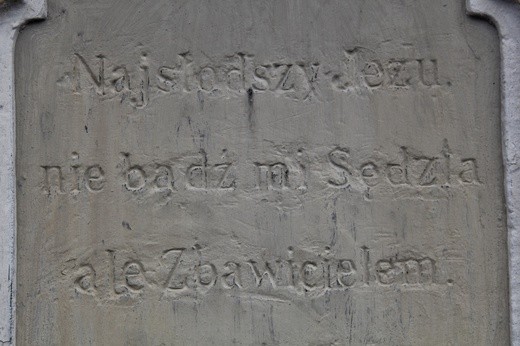 Najsłodszy Jezu.
nie bądź mi Sędzią
ale Zbawicielem.